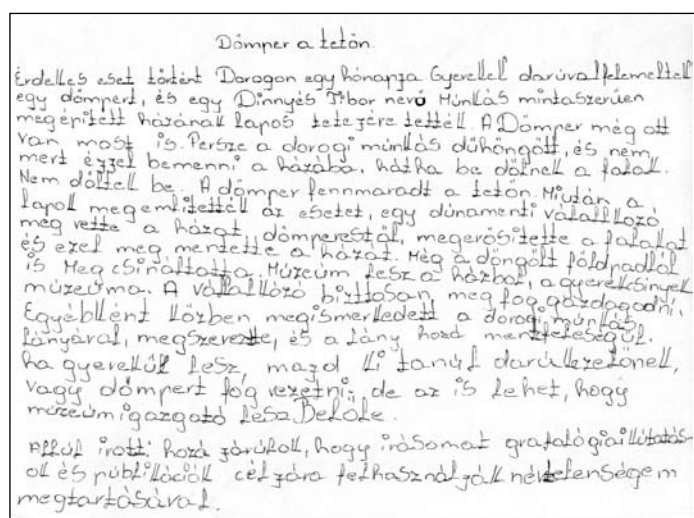 Dömper a tetőn.
Érdelles eset történt Dorogon egy hónapja Gyerellel darúval felemeltell
egy dömpert, és egy Dinnyés Tibor nevű Múnllás mintaszerűen
megépített házának lapos tetejére tettéll A Dömper még ott
van most is. Persze a dorogi múnllás dühöngött, és nem
mert éjjel bemenni a házába, hátha be dőlnell a falall.
Nem dőltell be. A dömper fennmaradt a tetőn. Miután a
lapoll megemlítettéll az esetet, egy dúnamenti válallllozó
meg vette a házat, dömperestől, megerősítette a falallat
és ezel meg mentette a házat. Még a döngölt földpadlót
is Meg csináltatta. Múzeúm lesz a házból, a gyerellsinyell
múzeúma. A vállallllózó bizttosan, meg fog gazdagodni,
Egyébllént llözben megismerllедett a dorogi múnllás
lányával, megszerette, és a lány hozá ment feleségűl.
ha gyerellűll lesz, majd lli tanúl darúllezelőnell,
vagy dömpert fog vezetni; de az is lehet, hogy
múzeúmigazgató lesz Belőle.
Allúl irott: hozá járúlloll, hogy irásomat grafalógiai llútatás-
oll és públilláciáll céljára felhasználjáll névtelenségem
megtartásával.